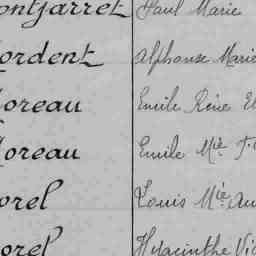 ontjarret Paul Marie
ordent Alphonse Marie
oreau Emile Réné E
oreau Emile Mie J.
orel Louis Mie Au
orel Hyacinthe Vic